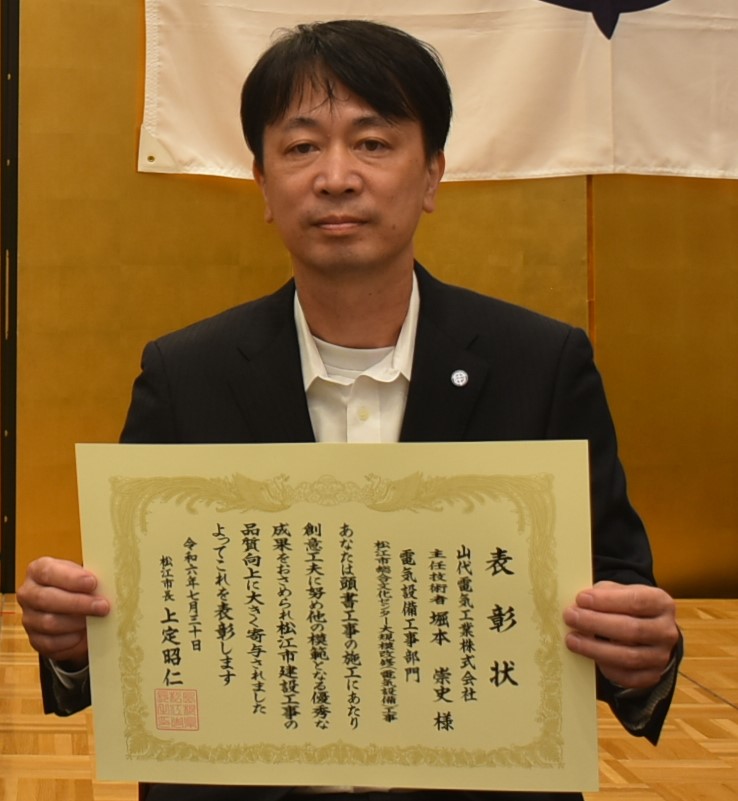 表彰状
山代電気工業株式会社
主任技術者 堀本 崇史 様
電気設備工事部門
松江市総合文化センター大規模改修(電気設備)工事
あなたは頭書工事の施工にあたり
創意工夫に努め他の模範となる優秀な
成果をおさめられ松江市建設工事の
品質向上に大きく寄与されました
よってこれを表彰します
令和六年七月三十日
松江市長 上定昭仁